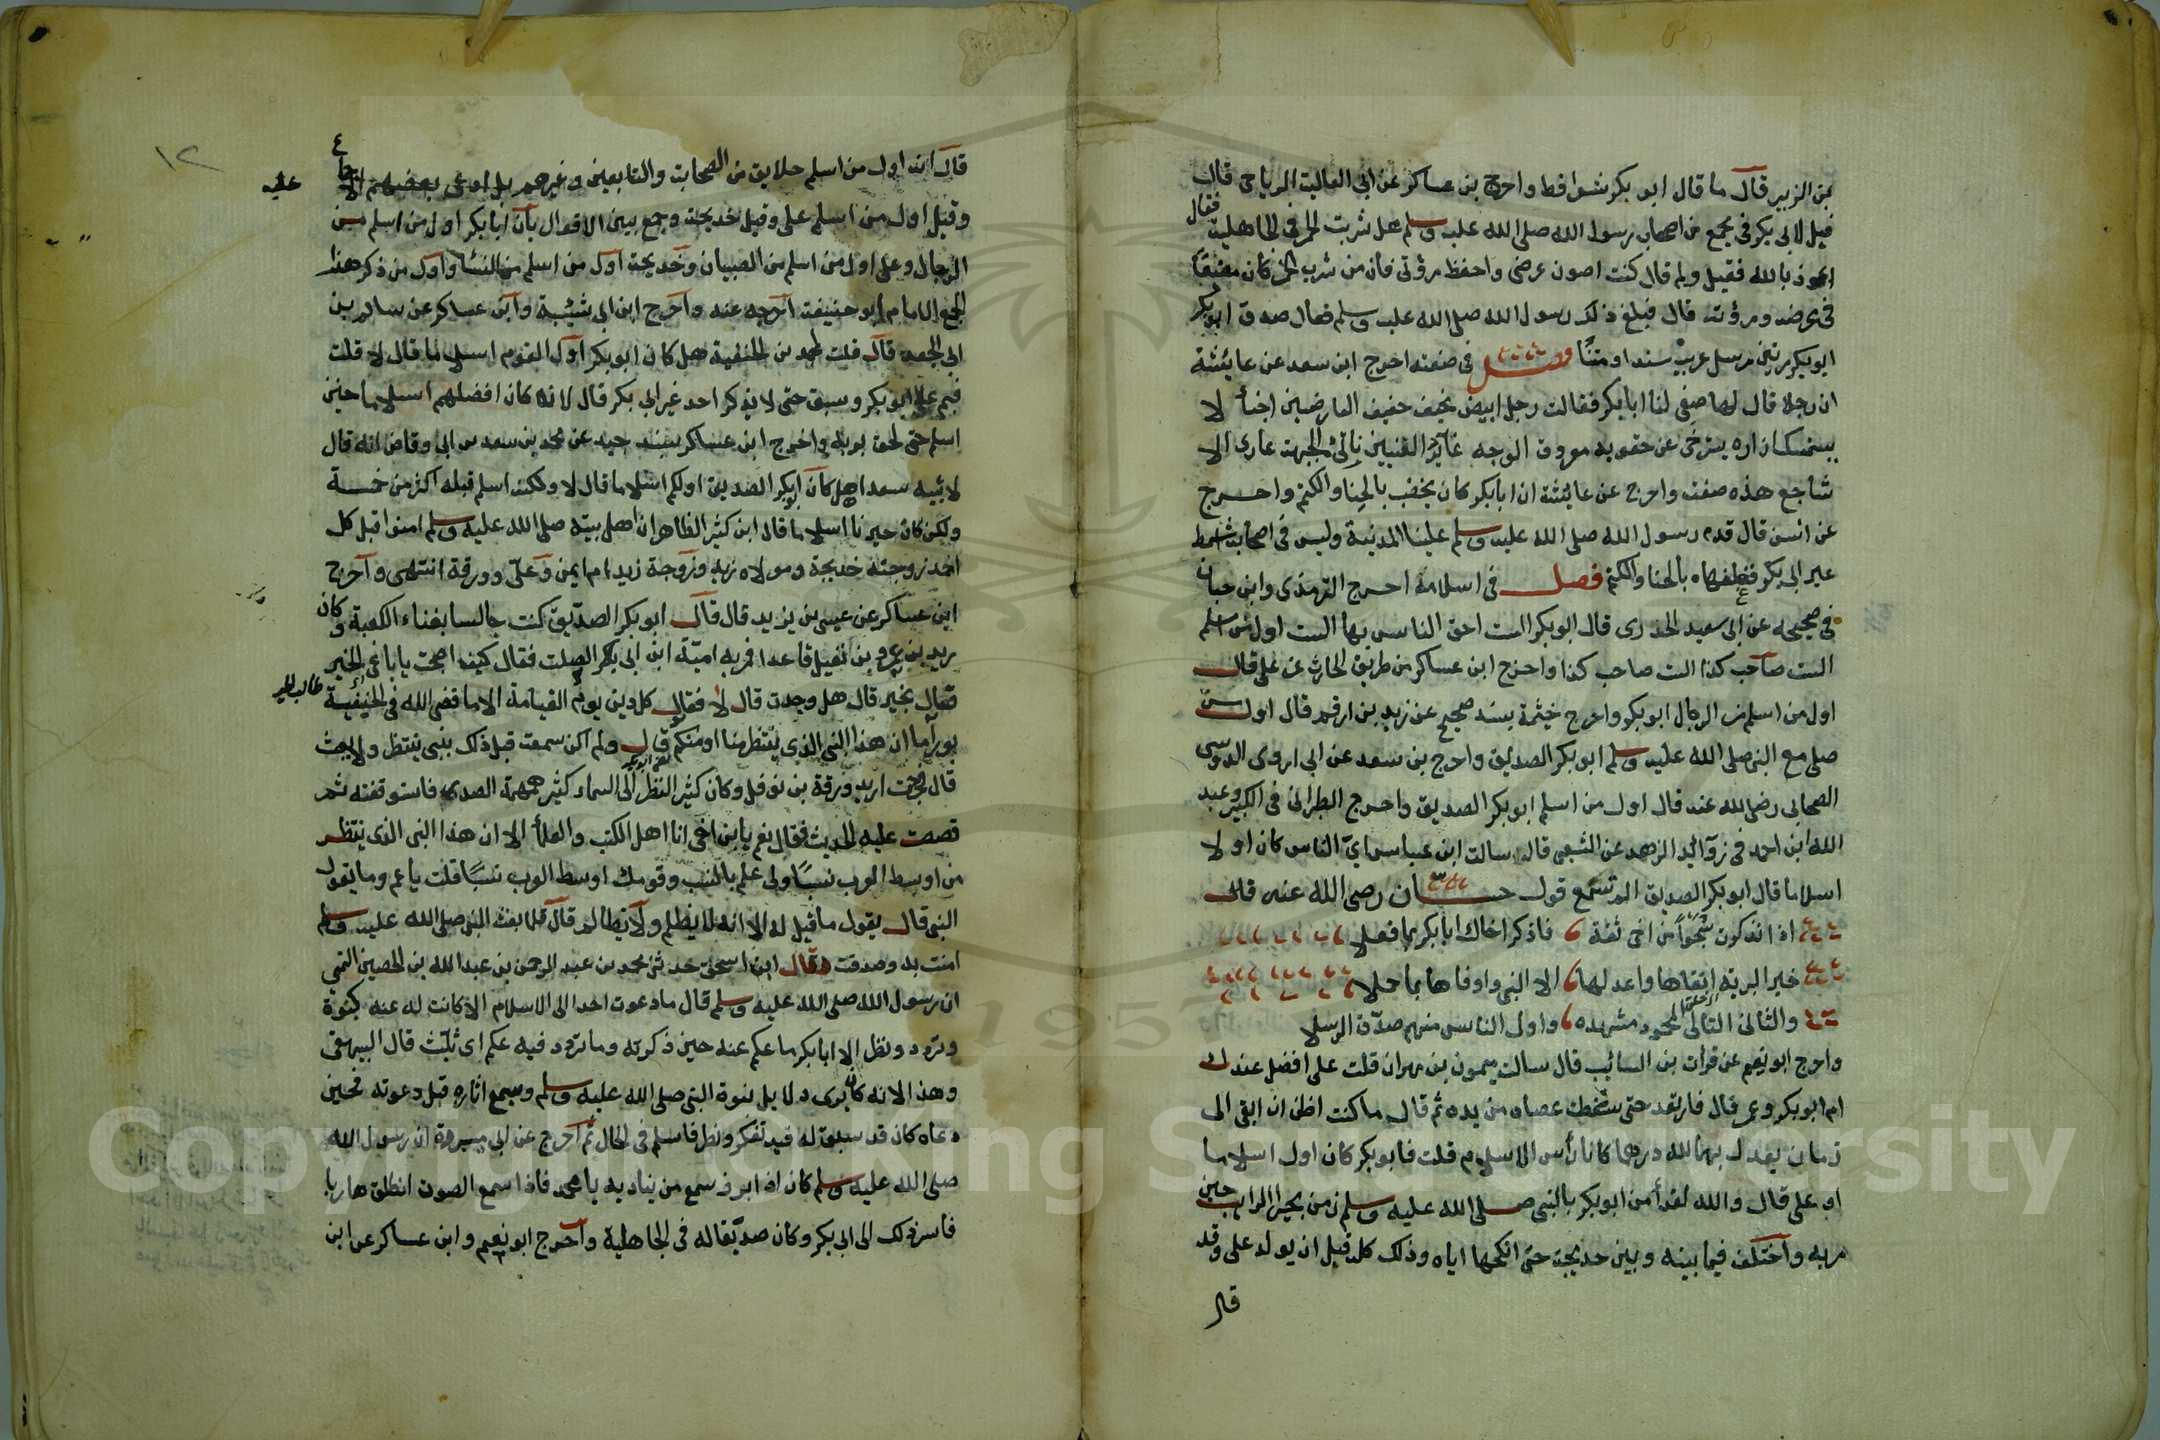 بن الزبير قال ما قال ابو بكر شعرا قط واخرج بن عساكر عن ابي العالية الرياحي قال
قيل لابي بكر في مجمع من اصحاب رسول الله صلى الله عليه وسلم هل شربت الخمر في الجاهلية فقال
اعوذ بالله فقيل ولم قال كنت اصون عرضي واحفظ مروتي فان من شرب الخمر كان مضيعا
في عرضه ومروته قال فبلغ ذلك رسول الله صلى الله عليه وسلم فقال صدق ابو بكر
ابو بكر مرتين مرسل غريب سندا ومتنا فصل في صفته اخرج ابن سعد عن عايشة
ان رجلا قال لها صفي لنا ابا بكر فقالت رجل ابيض نحيف خفيف العارضين اجنأ لا
يستمسك ازاره يسترخي عن حقويه معروق الوجه غاير العينين ناتئ الجبهة عاري الا
شاجع هذه صفته واخرج عن عايشة ان ابا بكر كان يخضب بالحنا والكتم واخرج
عن انس قال قدم رسول الله صلى الله عليه وسلم علينا المدينة وليس في اصحابه اشمط
غير ابي بكر فغلفها بالحنا والكتم فصل في اسلامه اخرج الترمذي وابن حبان
في صحيحه عن ابي سعيد الخدري قال ابو بكر الست احق الناس بها الست اول من اسلم
الست صاحب كذا الست صاحب كذا واخرج ابن عساكر من طريق الحارث عن علي قال
اول من اسلم من الرجال ابو بكر واخرج خيثمة بسند صحيح عن زيد بن ارقم قال اول من
صلى مع النبي صلى الله عليه وسلم ابو بكر الصديق واخرج بن سعد عن ابي اروى الدوسي
الصحابي رضي الله عنه قال اول من اسلم ابو بكر الصديق واخرج الطبراني في الكبير وعبد
الله ابن احمد في زوائد الزهد عن الشعبي قال سالت ابن عباس اي الناس كان اولا
اسلاما قال ابو بكر الصديق الم تسمع قول حسان رضي الله عنه قال
اذا تذكرت شجوا من اخي ثقة فاذكر اخاك ابا بكر بما فعلا
خير البرية اتقاها واعدلها الا النبي واوفاها بما حملا
والثاني التالي المحمود مشهده واول الناس منهم صدق الرسلا
واخرج ابو نعيم عن فرات بن السائب قال سالت ميمون بن مهران قلت علي افضل عندك
ام ابو بكر وعمر قال فارتعد حتى سقطت عصاه من يده ثم قال ما كنت اظن ان ابقى الى
زمان يعدل بهما لله درهما كانا رأس الاسلام قلت فابو بكر كان اول اسلاما
او علي قال والله لقد أمن ابو بكر بالنبي صلى الله عليه وسلم زمن بحيرا الراهب حين
مر به واختلف فيما بينه وبين خديجة حتى انكحها اياه وذلك كله قبل ان يولد علي وقد
قال
١٢
قال انه اول من اسلم خلايق من الصحابة والتابعين وغيرهم بل ادعى بعضهم الاجماع عليه
وقيل اول من اسلم علي وقيل خديجة وجمع بين الاقوال بان ابا بكر اول من اسلم من
الرجال وعلي اول من اسلم من الصبيان وخديجة اول من اسلم من النسا واول من ذكر هذا
الجمع الامام ابو حنيفة اخرجه عنه واخرج ابن ابي شيبة وابن عساكر عن سالم بن
ابي الجعد قال قلت لمحمد بن الحنفية هل كان ابو بكر اول القوم اسلاما قال لا قلت
فبم علا ابو بكر وسبق حتى لا يذكر احد غير ابي بكر قال لانه كان افضلهم اسلاما حين
اسلم حتى لحق بربه واخرج ابن عساكر بسند جيد عن محمد بن سعد بن ابي وقاص انه قال
لابيه سعد اهل كان ابو بكر الصديق اولكم اسلاما قال لا ولكنه اسلم قبله اكثر من خمسة
ولكن كان خيرنا اسلاما قال ابن كثير الظاهر ان اهل بيته صلى الله عليه وسلم امنوا قبل كل
احد زوجته خديجة ومولاه زيد وزوجة زيد ام ايمن وعلي وورقة انتهى واخرج
ابن عساكر عن عيسى بن يزيد قال قال ابو بكر الصديق كنت جالسا بفناء الكعبة وكان
زيد بن عمرو بن نفيل قاعدا فمر به امية ابن ابي الصلت فقال كيف اصبحت يا باغي الخير
طالب الخير
فقال بخير قال هل وجدت قال لا فقال كل دين يوم القيامة الا ما قضى الله في الحنيفية
بور اما ان هذا النبي الذي ينتظر منا او منكم قال ولم اكن سمعت قبل ذلك بنبي ينتظر ولا يبعث
قال فخرجت اريد ورقة بن نوفل وكان كثير النظر الى السماء كثير همهمة الصدر فاستوقفته ثم
قصصت عليه الحديث فقال نعم يا بن اخي انا اهل الكتب والعلماء الا ان هذا النبي الذي ينتظر
من اوسط العرب نسبا ولي علم بالنسب وقومك اوسط العرب نسبا قلت يا عم وما يقول
النبي قال يقول ما قيل له الا انه لا يظلم ولا يظالم قال فلما بعث النبي صلى الله عليه وسلم
امنت به وصدقت وقال ابن اسحق حدثني محمد بن عبد الرحمن بن عبد الله بن الحصين التميمي
ان رسول الله صلى الله عليه وسلم قال ما دعوت احدا الى الاسلام الا كانت له عنه كبوة
وتردد ونظر الا ابا بكر ما عكم عنه حين ذكرته وما تردد فيه عكم اي تلبث قال البيهقي
وهذا الانه كان يرى دلايل نبوة النبي صلى الله عليه وسلم ويسمع اثاره قبل دعوته فحين
دعاه كان قد سبق له فيه تفكر ونظر فاسلم في الحال ثم اخرج عن ابي ميسرة ان رسول الله
صلى الله عليه وسلم كان اذا برز سمع من يناديه يا محمد فاذا سمع الصوت انطلق هاربا
فاسر ذلك الى ابي بكر وكان صديقا له في الجاهلية واخرج ابو نعيم وابن عساكر عن ابن
1957
Copyright © King Saud University